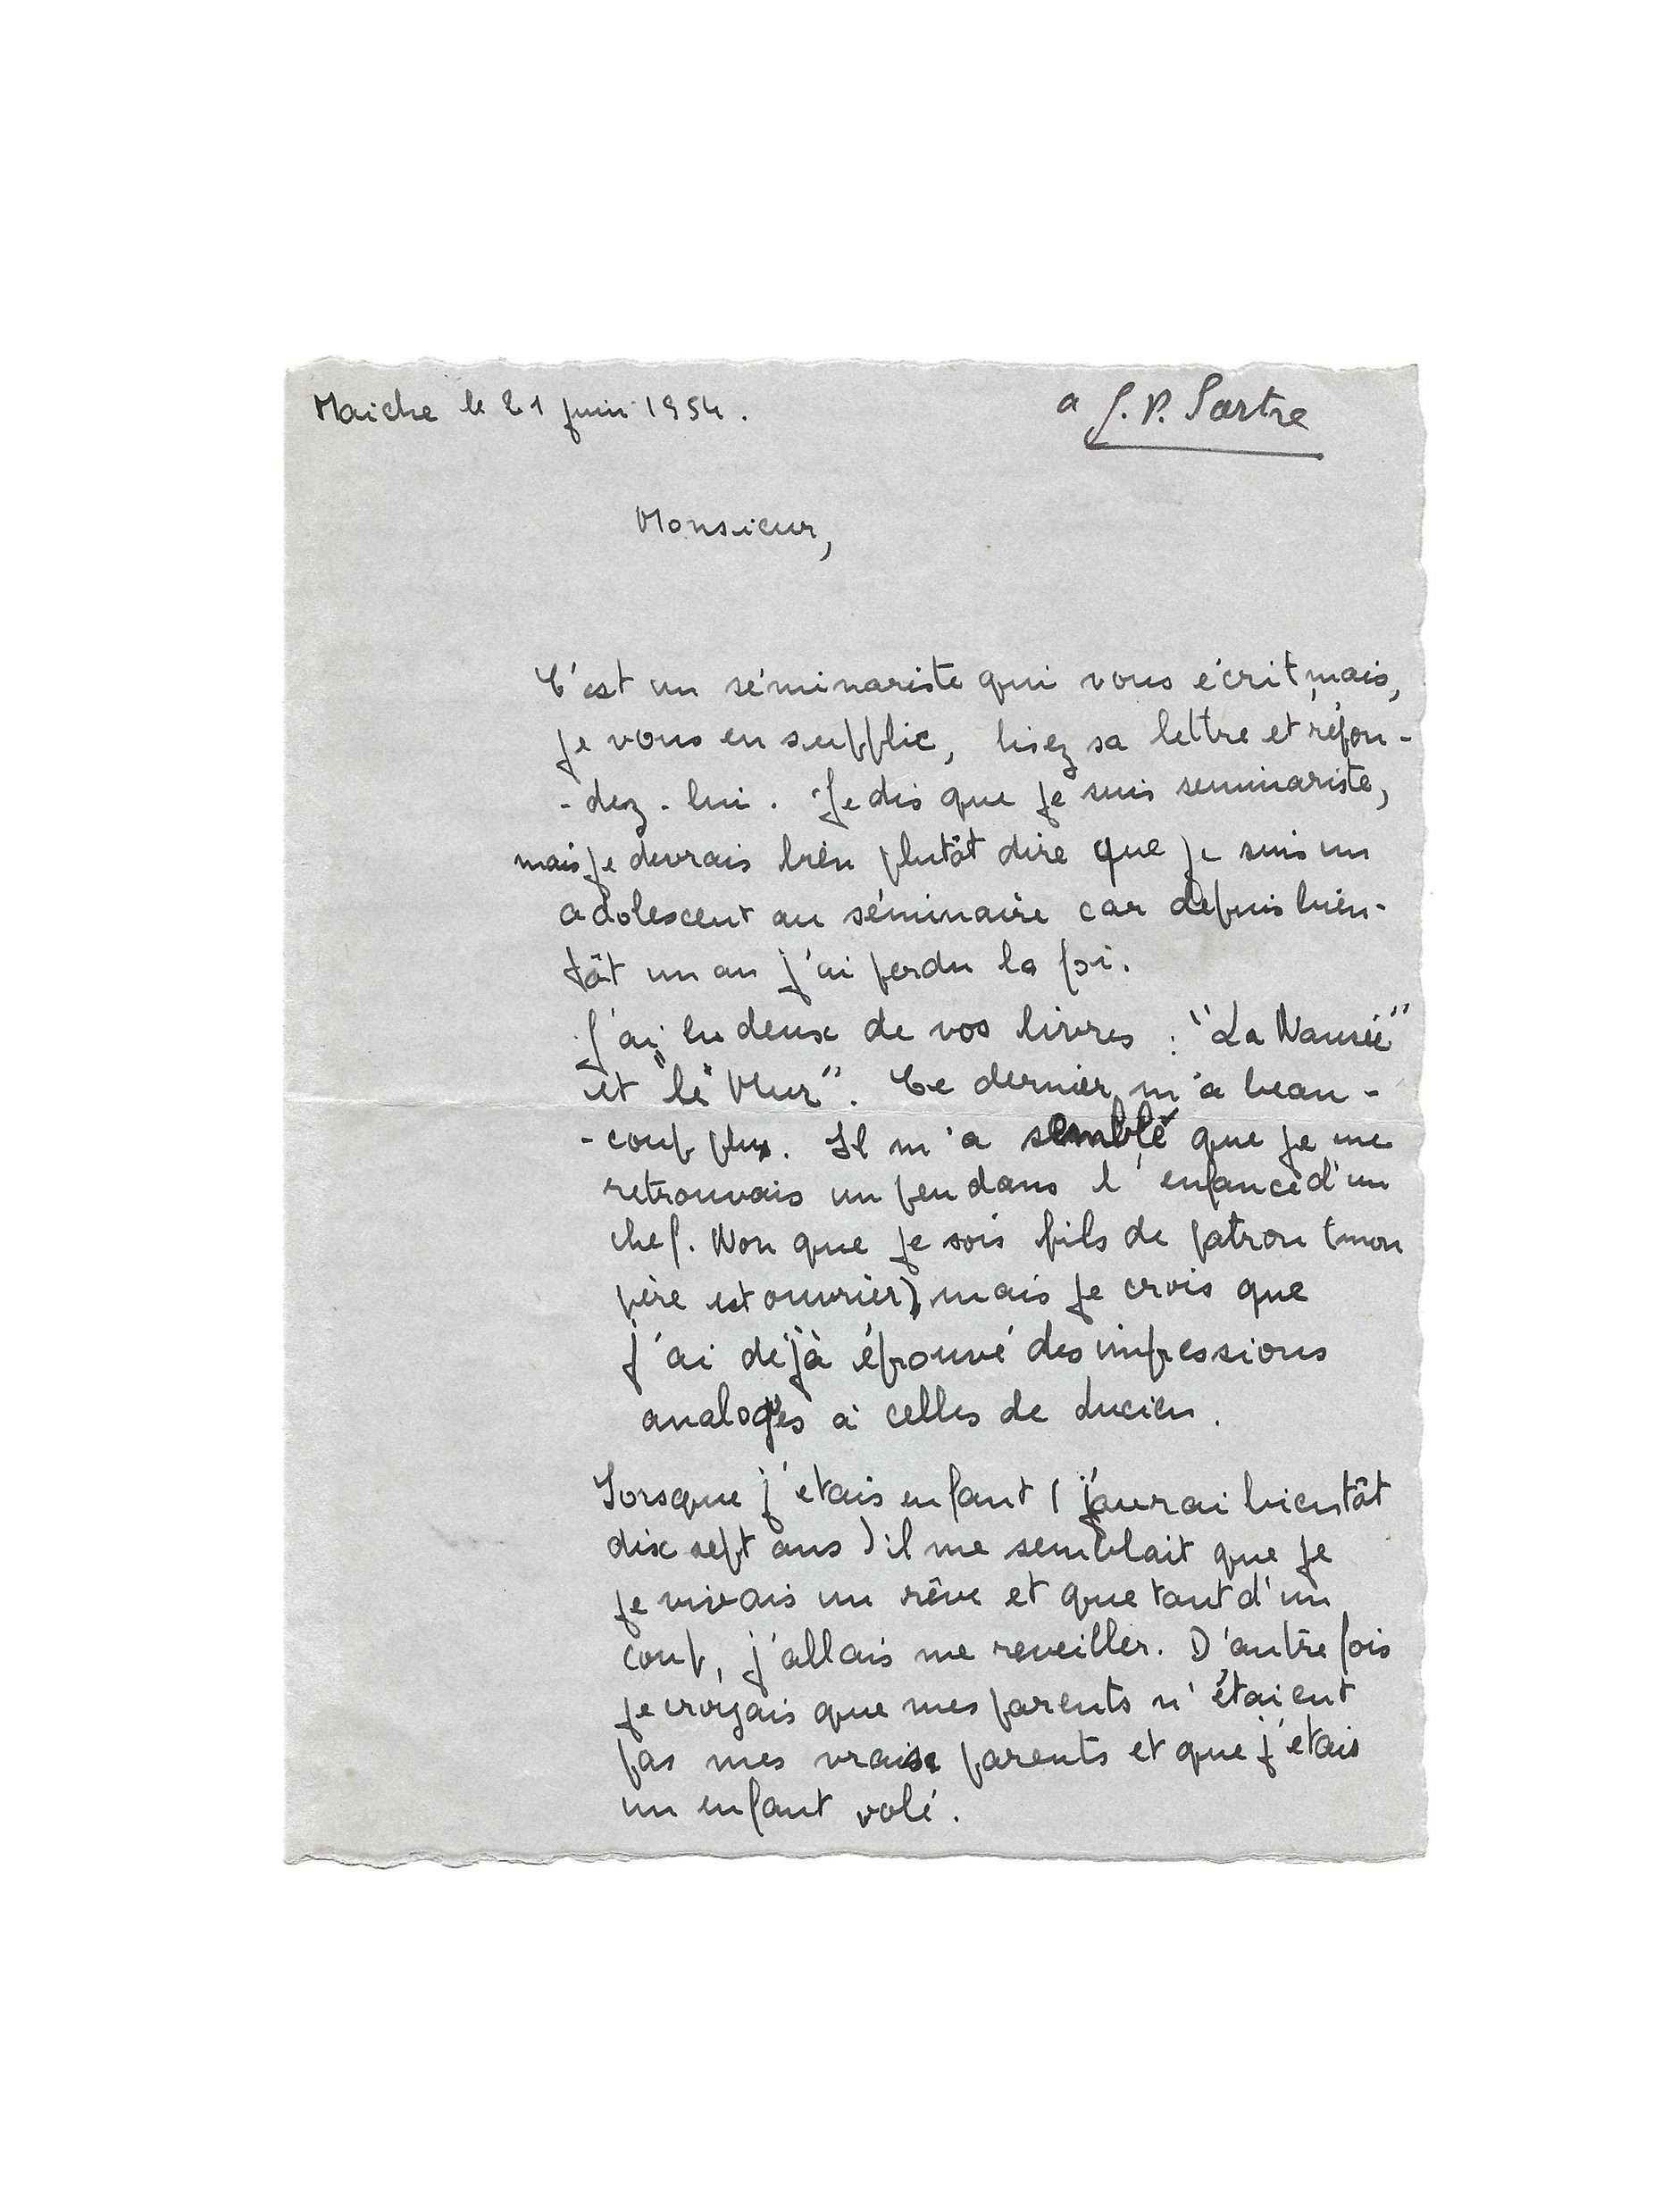 Maiche le 21 juin 1954.
a J. P. Sartre
Monsieur,
C'est un séminariste qui vous écrit, mais,
je vous en supplie, lisez sa lettre et répon-
-dez-lui. Je dis que je suis seminariste,
mais je devrais bien plutôt dire que je suis un
adolescent au séminaire car depuis bien-
tôt un an j'ai perdu la foi.
J'ai lu deux de vos livres : "La Nausée"
et "le Mur". Ce dernier m'a beau-
-coup plus. Il m'a semblé que je me
retrouvais un peu dans l'enfance d'un
chef. Non que je sois fils de patron (mon
père est ouvrier), mais je crois que
j'ai déjà éprouvé des impressions
analogues à celles de Lucien.
Lorsque j'étais enfant (j'aurai bientôt
dix sept ans) il me semblait que je
je vivais un rêve et que tout d'un
coup, j'allais me reveiller. D'autre fois
je croyais que mes parents n'étaient
pas mes vrais parents et que j'étais
un enfant volé.